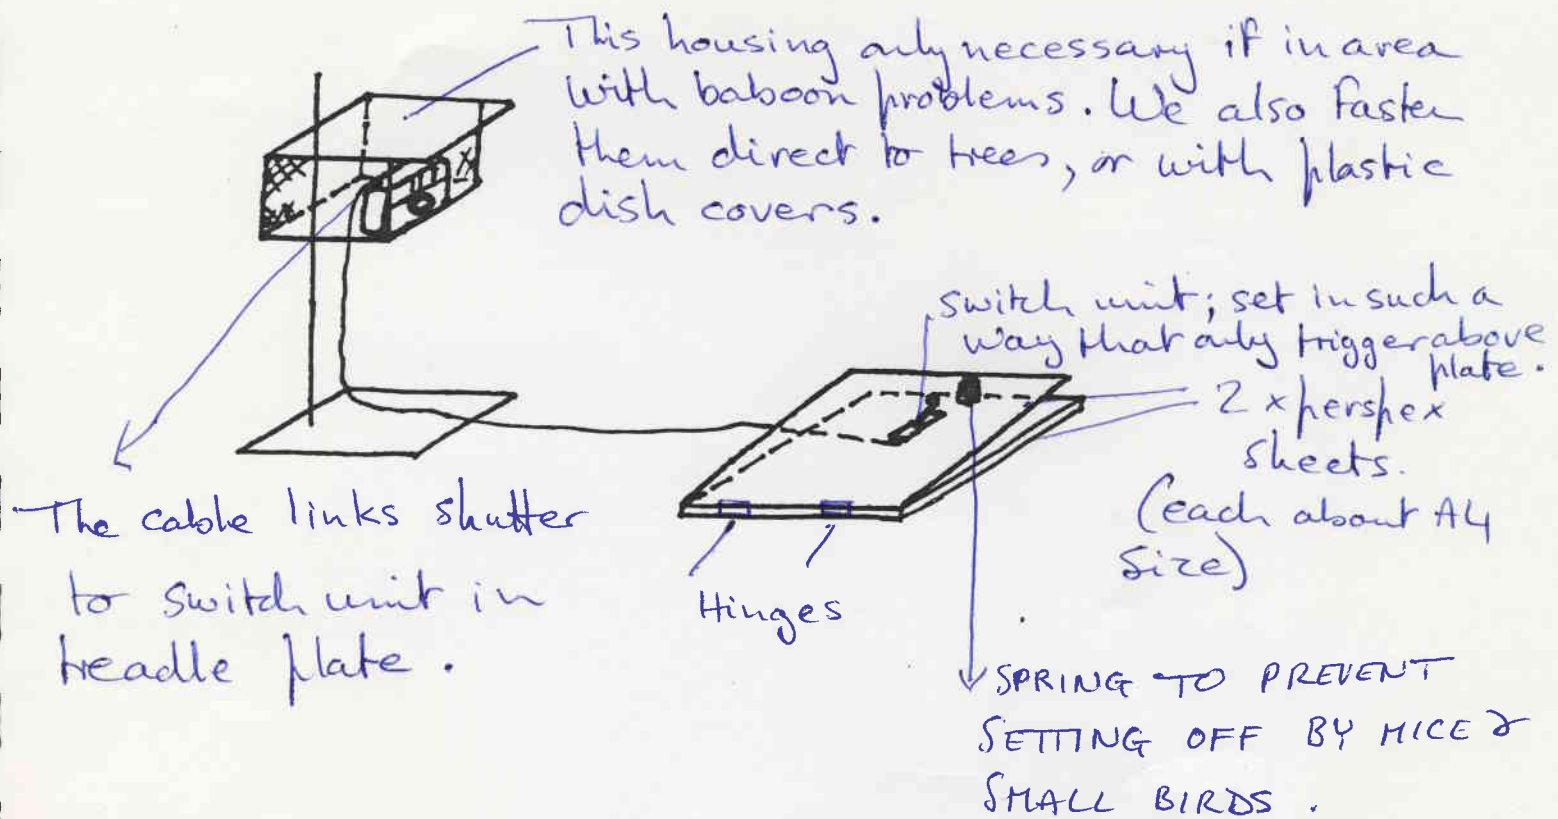 This housing only necessary if in area
with baboon problems. We also fasten
them direct to trees, or with plastic
dish covers.
switch unit; set in such a
way that only trigger above
plate.
2 x perspex
sheets.
(each about A4
size)
The cable links shutter
to switch unit in
treadle plate.
Hinges
SPRING TO PREVENT
SETTING OFF BY MICE &
SMALL BIRDS.